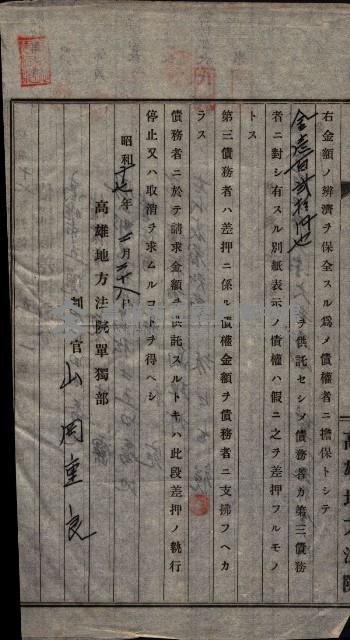 右金額ノ辨濟ヲ保全スル爲メ債權者ニ擔保トシテ
金壱百貳拾円也ヲ供託セシメ債務者カ第三債務
者ニ對シ有スル別紙表示ノ債權ハ假ニ之ヲ差押フルモノ
トス
第三債務者ハ差押ニ係ル債權金額ヲ債務者ニ支拂フヘカ
ラス
債務者ニ於テ請求金額ヲ供託スルトキハ此段差押ノ執行
停止又ハ取消ヲ求ムルコトヲ得ヘシ
昭和十七年二月二十八日
高雄地方法院單獨部
判官 山岡重良
高雄地方法院